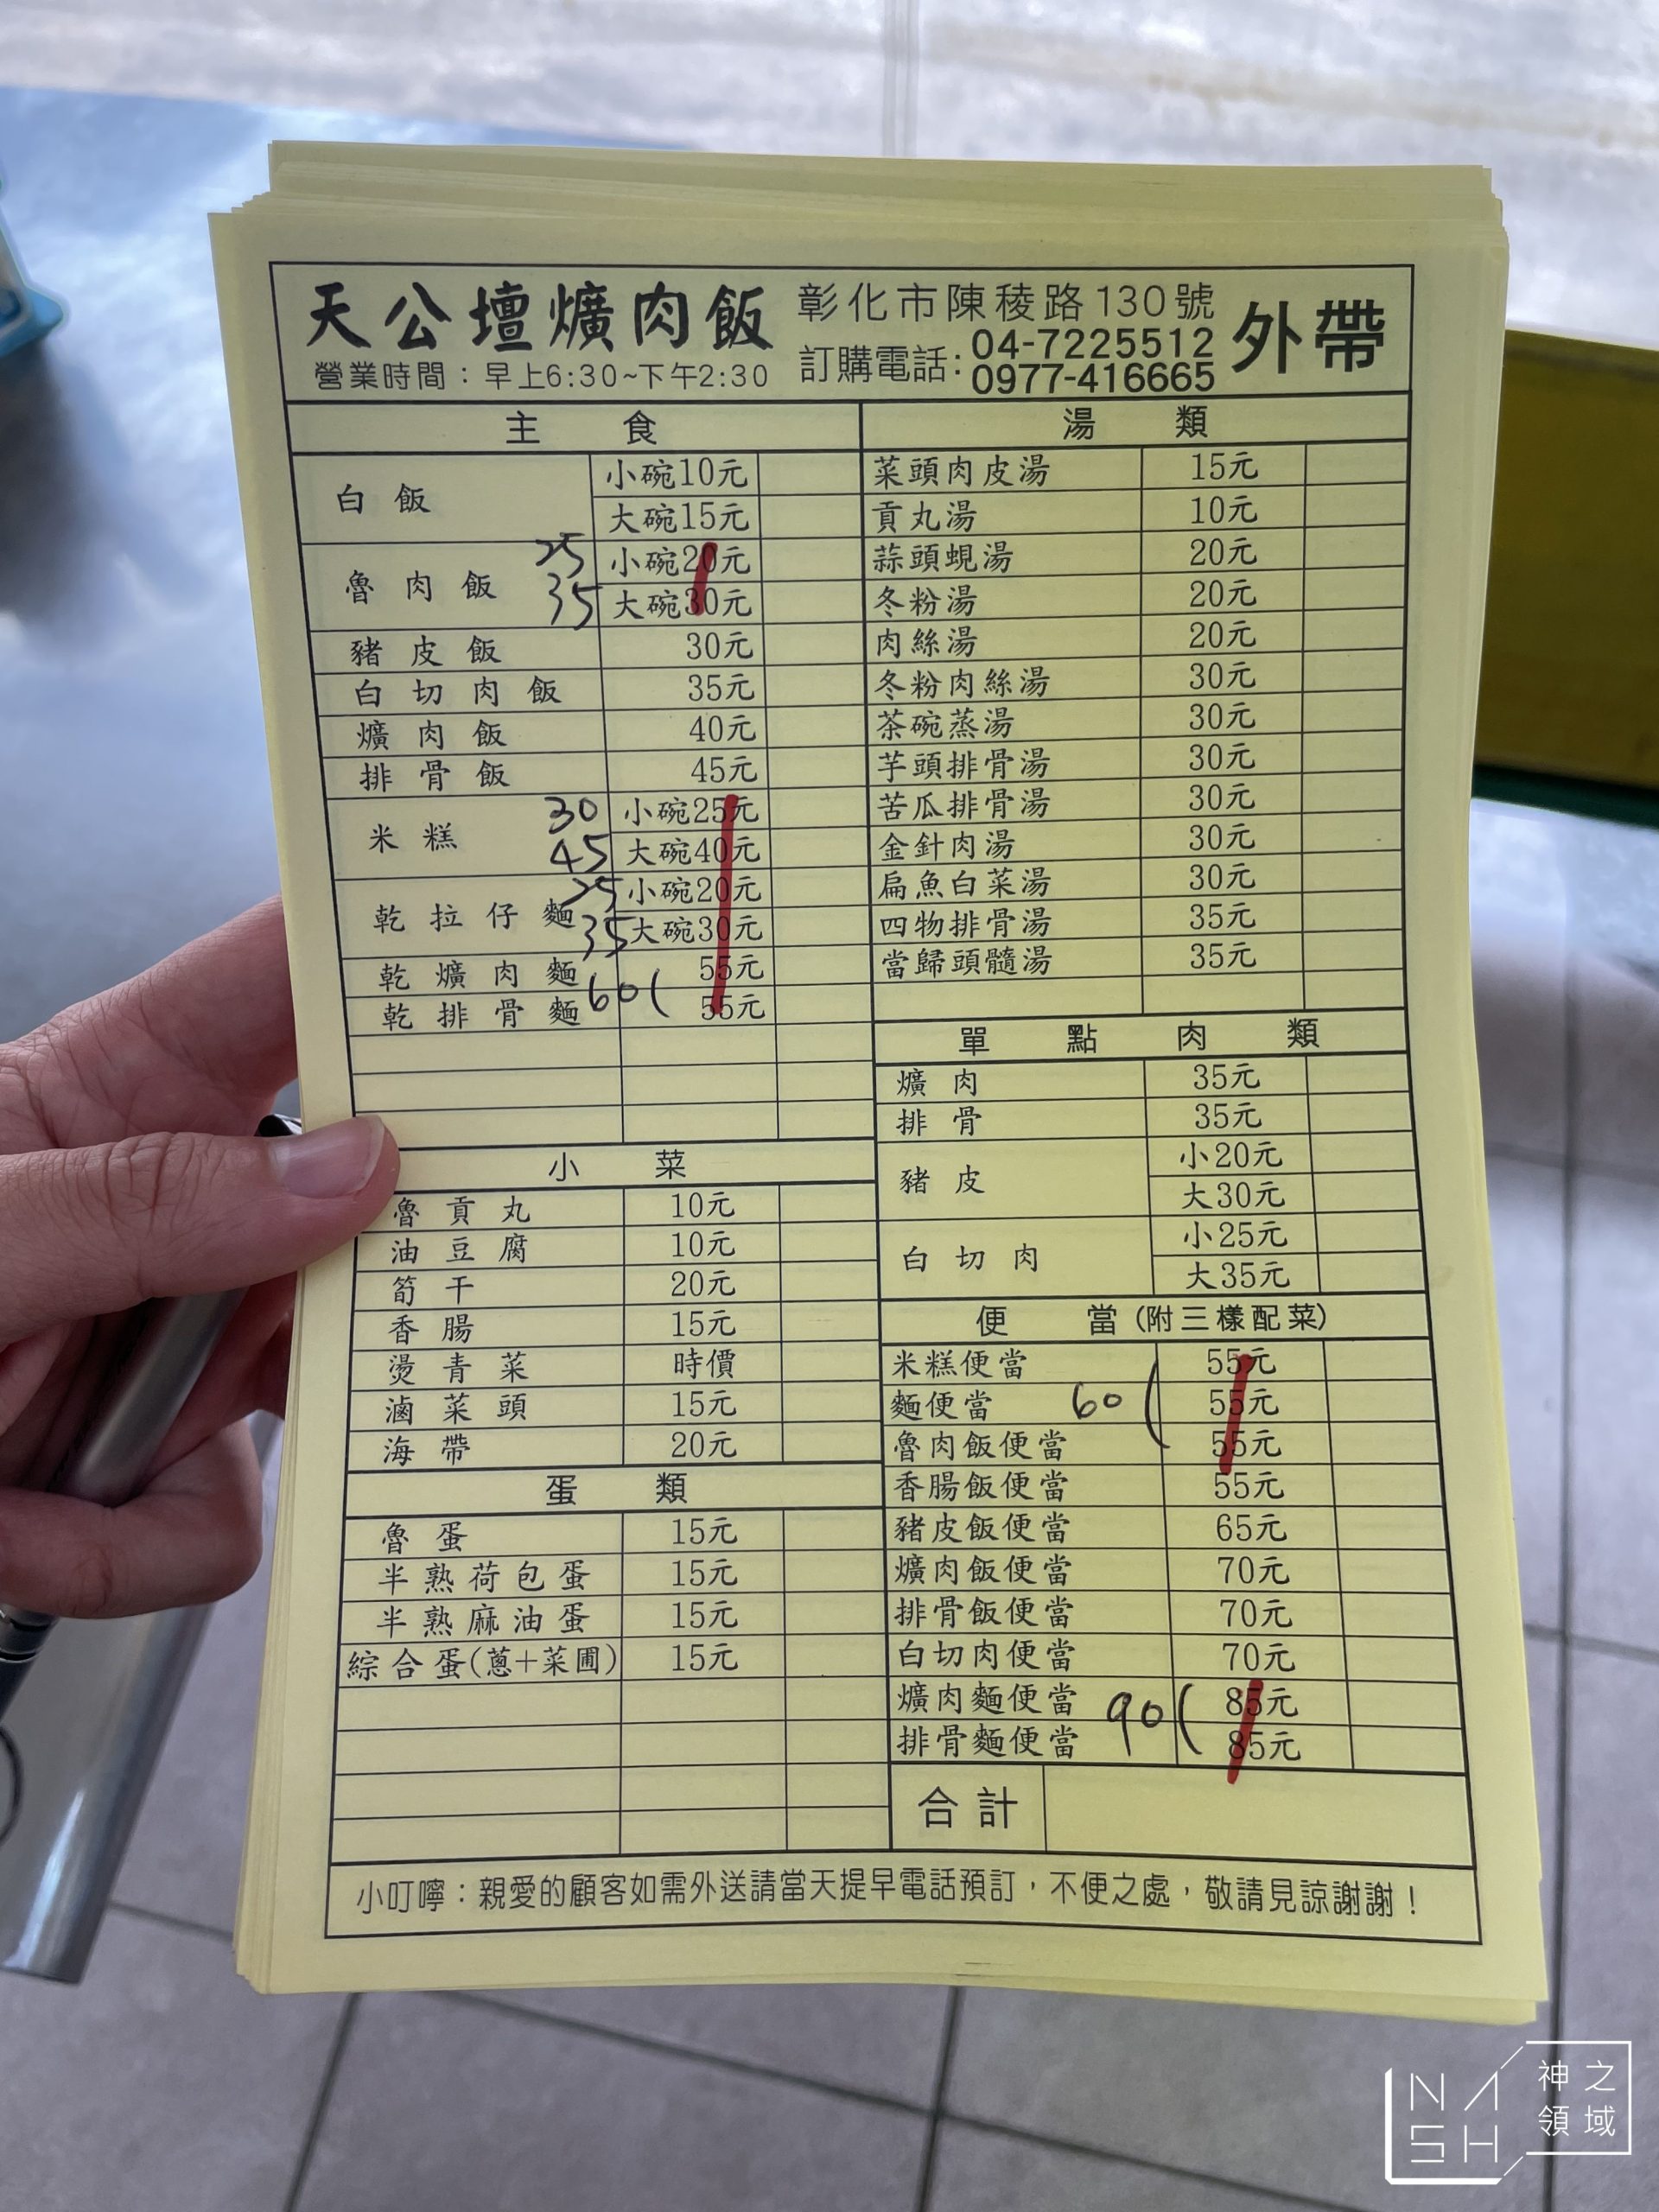 天公壇爌肉飯
營業時間：早上6:30~下午2:30
彰化市陳稜路130號
訂購電話：04-7225512
0977-416665
外帶
主 食
白飯 小碗10元
大碗15元
魯肉飯 25 小碗20元
35 大碗30元
豬皮飯 30元
白切肉飯 35元
爌肉飯 40元
排骨飯 45元
米糕 30 小碗25元
45 大碗40元
乾拉仔麵 25 小碗20元
35 大碗30元
乾爌肉麵 55元
乾排骨麵 60( 55元
小 菜
魯貢丸 10元
油豆腐 10元
筍干 20元
香腸 15元
燙青菜 時價
滷菜頭 15元
海帶 20元
蛋 類
魯蛋 15元
半熟荷包蛋 15元
半熟麻油蛋 15元
綜合蛋(蔥+菜圃) 15元
湯 類
菜頭肉皮湯 15元
貢丸湯 10元
蒜頭蜆湯 20元
冬粉湯 20元
肉絲湯 20元
冬粉肉絲湯 30元
茶碗蒸湯 30元
芋頭排骨湯 30元
苦瓜排骨湯 30元
金針肉湯 30元
扁魚白菜湯 30元
四物排骨湯 35元
當歸頭髓湯 35元
單 點 肉 類
爌肉 35元
排骨 35元
豬皮 小20元
大30元
白切肉 小25元
大35元
便 當(附三樣配菜)
米糕便當 55元
麵便當 60( 55元
魯肉飯便當 55元
香腸飯便當 55元
豬皮飯便當 65元
爌肉飯便當 70元
排骨飯便當 70元
白切肉便當 70元
爌肉麵便當 90( 85元
排骨麵便當 85元
合計
小叮嚀：親愛的顧客如需外送請當天提早電話預訂，不便之處，敬請見諒謝謝！
NASH
神之
領域